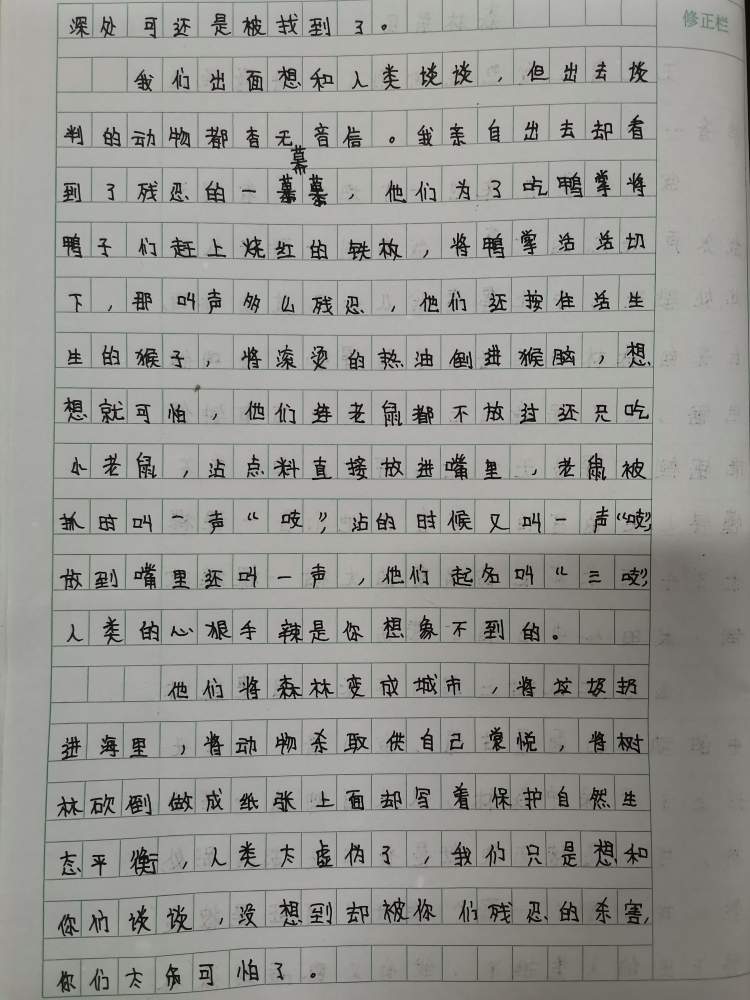 修正栏
深处可还是被找到了。
我们出面想和人类谈谈，但出去谈
判的动物都杳无音信。我亲自出去却看
幕
到了残忍的一，他们为了吃鸭掌将
鸭子们赶上烧红的铁板，将鸭掌活活切
下，那叫声多么残忍，他们还按住活生
生的猴子，将滚烫的热油倒进猴脑，想
想就可怕，他们连老鼠都不放过还只吃
小老鼠，沾点料直接放进嘴里，老鼠被
抓时叫一声“吱”，沾的时候又叫一声“吱”，
放到嘴里还叫一声，他们起名叫“三吱”，
人类的心狠手辣是你想象不到的。
他们将森林变成城市，将垃圾扔
进海里，将动物杀取供自己裳悦，将树
林砍倒做成纸张上面却写着保护自然生
态平衡，人类太虚伪了，我们只是想和
你们谈谈，没想到却被你们残忍的杀害，
你们太可怕了。